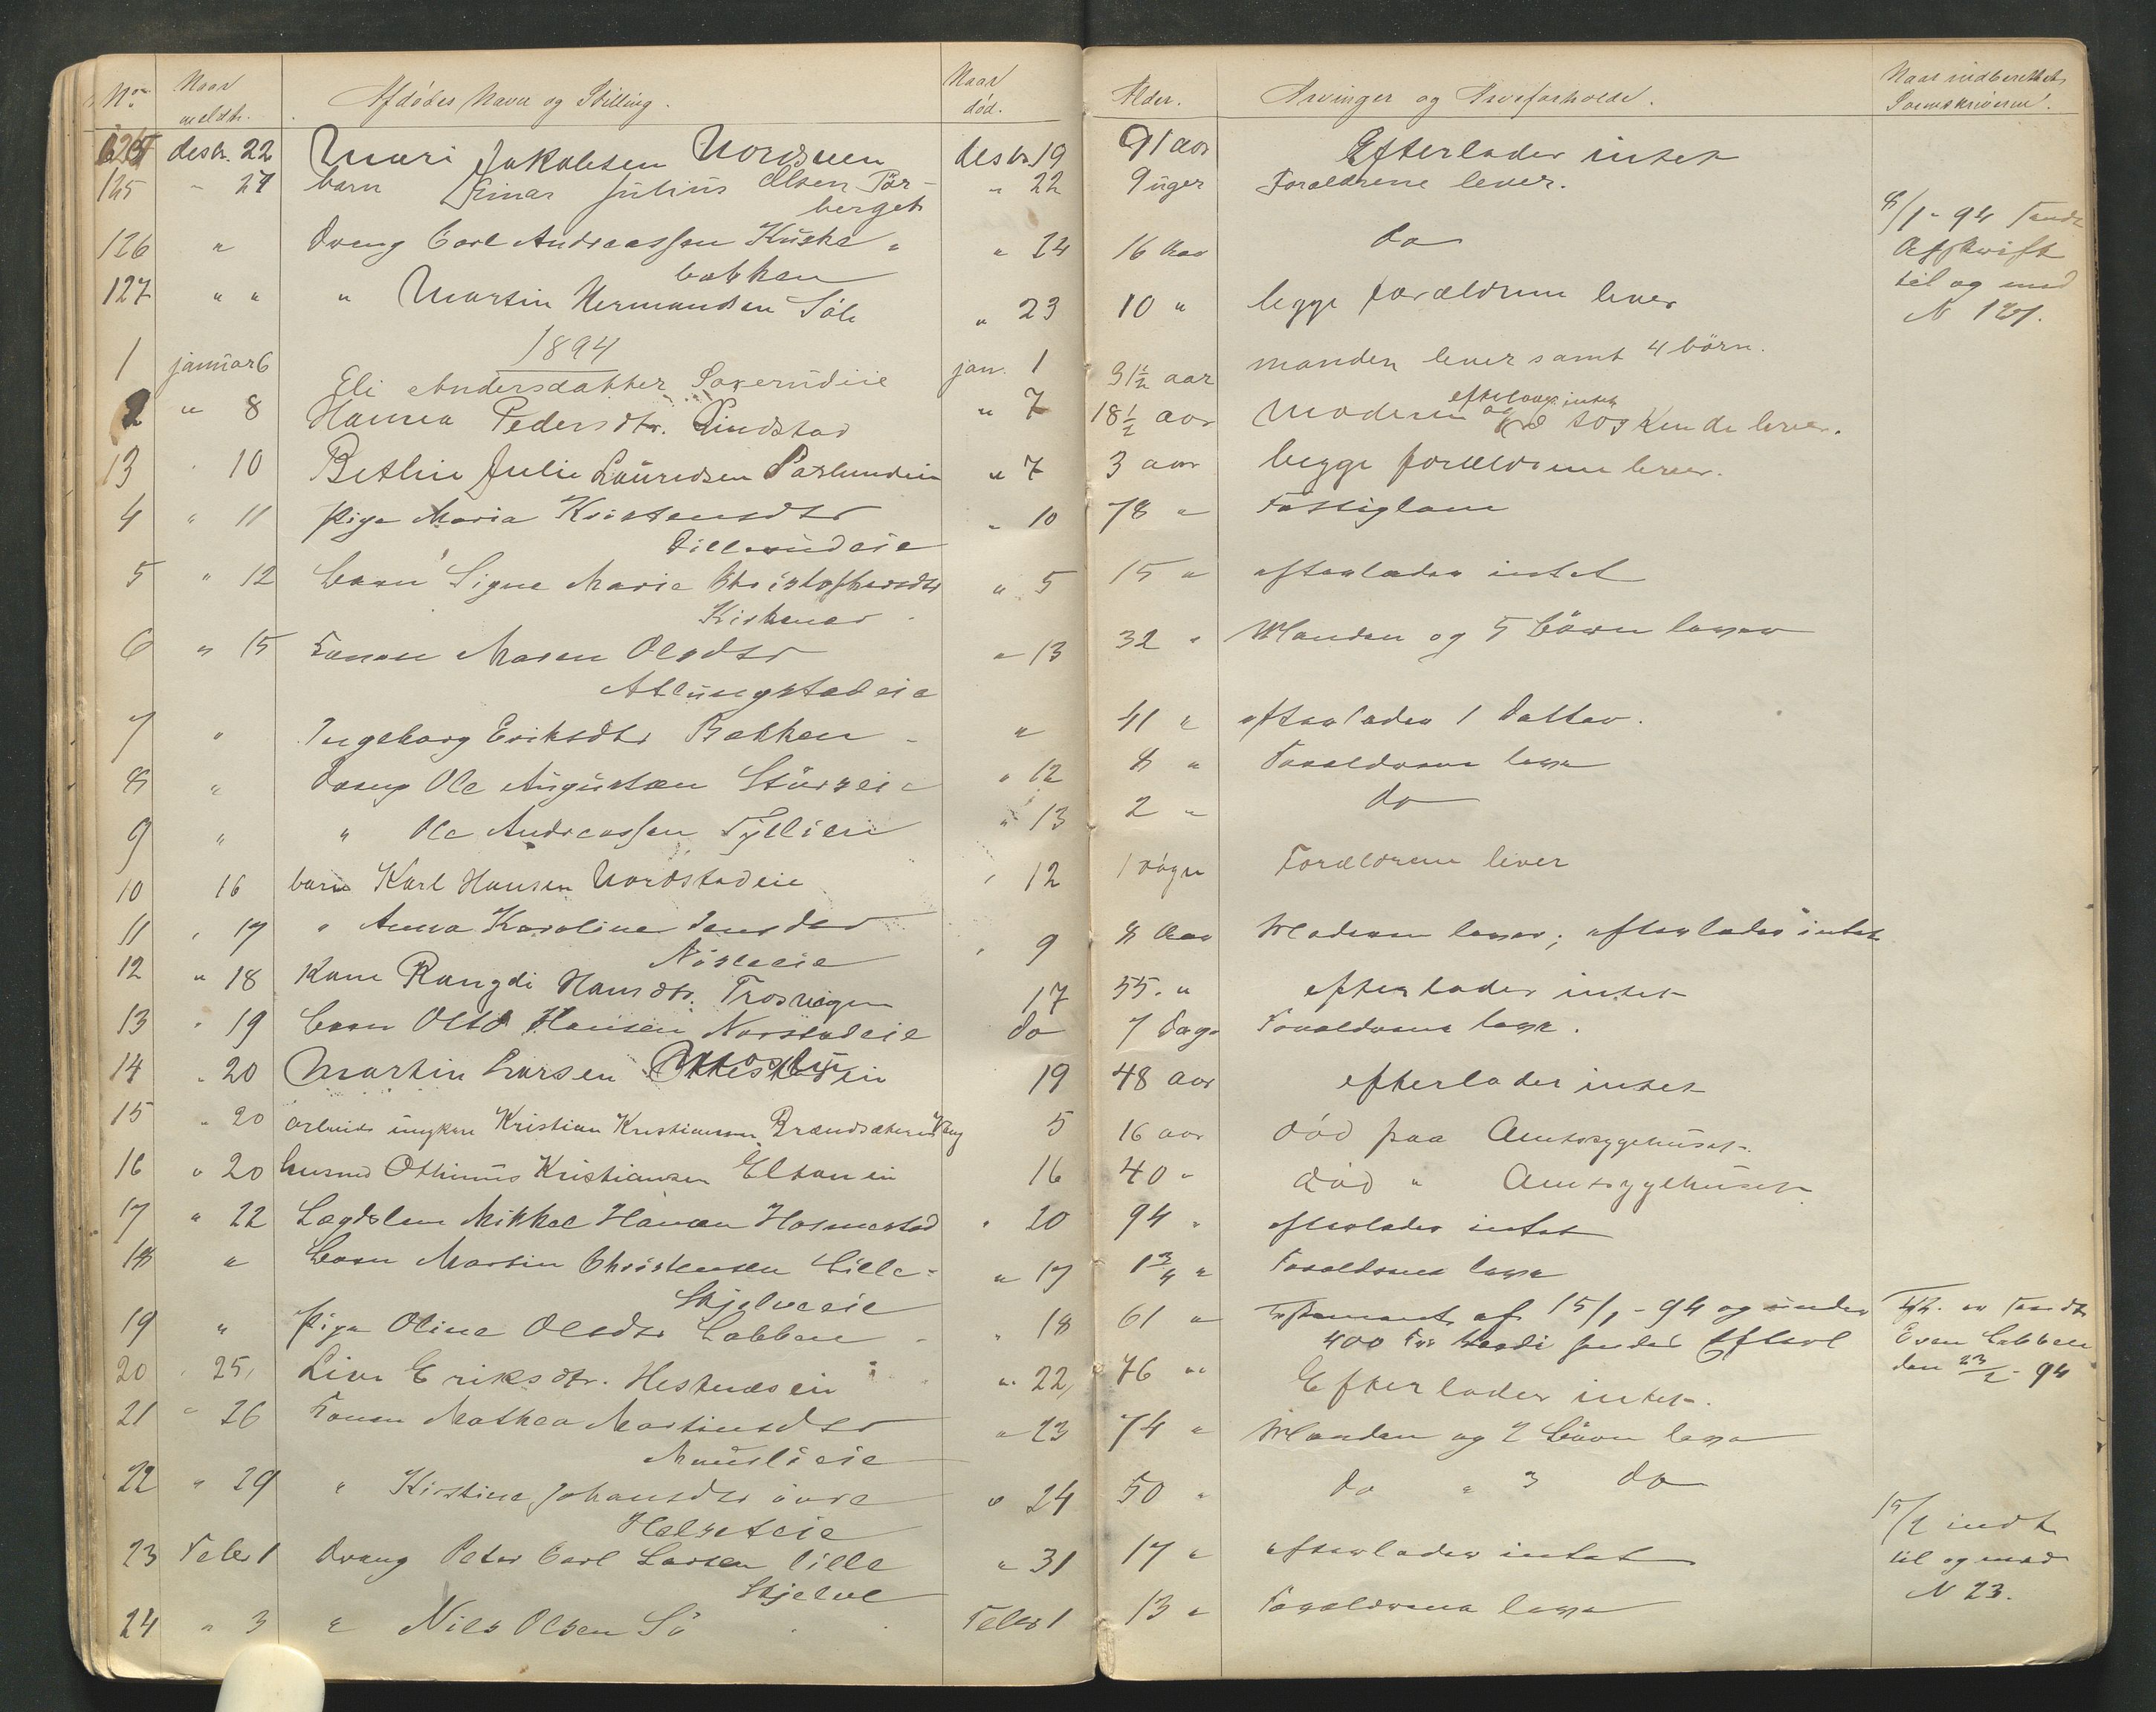 No. Naar meldt. Afdødes Navn og Stilling. Naar død. Alder. Arvinger og Arvsforholde. Naar indberettet Sorenskriveren.
124 desbr. 22 Mari Jakobsen desbr. 19 91 aar Efterlader intet
125 " 27 barn Einar Julius Olsen " 22 9 uger Forældrene lever.
berget
126 " Dreng Carl Andreassen Kuske " 24 16 Aar do 8/1 - 94 sendt
bakken Afskrift
127 " " " Martin Hermansen " 23 10 " begge forældrene lever til og med
N 127.
1894
1 januar 6 Eli Andersdatter jan. 1 31½ aar manden lever samt 4 børn.
efterlader intet
2 " 8 Hanna Pedersdtr. Rindstad " 7 18½ aar Moderen og søskende lever.
13 " 10 Bethie Julie Lauridsen " 7 3 aar begge forældrene lever.
4 " 11 Pige Maria Kristensdtr " 10 78 " Fattiglem
5 " 12 barn Signe Marie Christophersdtr " 5 15 " efterlader intet
6 " 15 Konen Maren Olsdtr " 13 32 " Manden og 5 Børn lever
Atlungstadeie
7 " Ingeborg Eriksdtr Bakken " 41 " efterlader 1 Datter.
8 " Dreng Ole Augustsen " 12 8 " Forældrene leve
9 " " Ole Andreassen " 13 2 " do
10 16 barn Karl Hansen Nordstadeie " 12 1 døgn Forældrene lever
11 " 17 " Anna Karoline Jensdtr " 9 8 Aar Moderen lever; efterlader intet
12 " 18 Kone Rangdi Hansdtr. 17 55. " efterlader intet
13 " 19 barn Hansen Norstadeie do 7 Dage Forældrene leve.
14 " 20 Martin Larsen 19 48 aar efterlader intet
15 " 20 arbeids ungkar Kristian Kristiansen 5 16 aar død paa Amtssygehuset
16 " 20 husmd Othinius Kristiansen 16 40 " død " Amtssygehuset
17 " 22 Lægdslem Mikkel Hansen Hosmestad " 20 94 " efterlader intet
18 " barn Martin Christensen Lille- " 17 1¾ " Forældrene leve
Skjelveeie
19 " Pige Oline Olsdtr Labben " 18 61 " Testament af 15/1 - 94 og under
400 Kr Værdi
Even Labben
den 23/2 - 94
20 " 25, Live Eriksdtr. Hestnæseie " 22, 76 " Efterlader intet.
21 " 26 Konen Mathea Martinsdtr " 23 74 " Manden og 2 Børn leve
22 " 29 " Kirstine Johansdtr øvre " 24 50 " do " 3 do
23 Febr 1 Dreng Peter Carl Larsen lille " 31 17 " efterlader intet 15/2 indt
Skjelve til og med
N 23.
24 " 3 " Nils Olsen Febr 1 13 " Forældrene leve